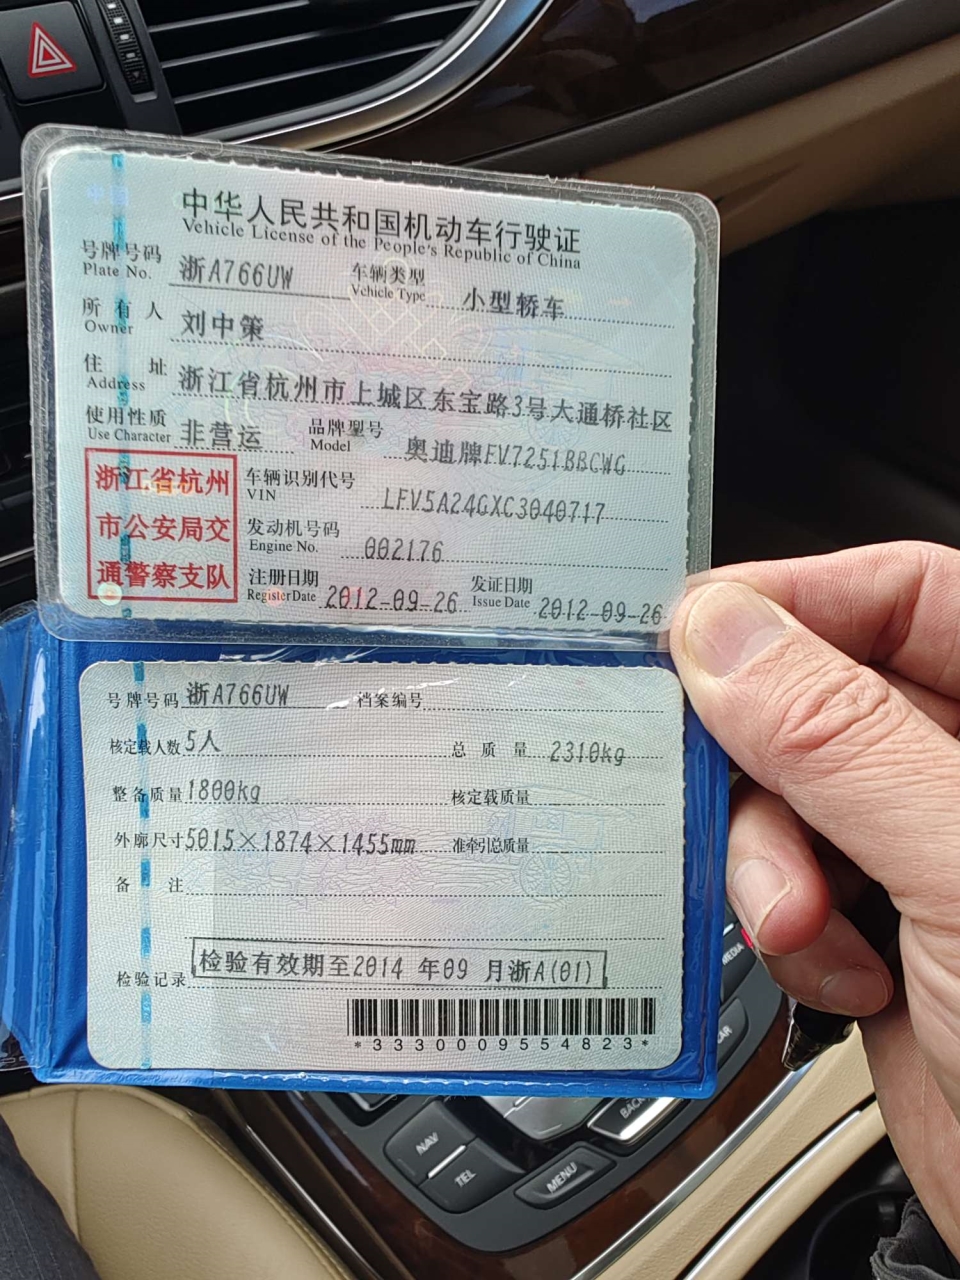 中华人民共和国机动车行驶证
Vehicle License of the People's Republic of China
号牌号码 浙A766UW 车辆类型 小型轿车
Plate No. Vehicle Type
所有人 刘中策
Owner
住址 浙江省杭州市上城区东宝路3号大通桥社区
Address
使用性质 非营运 品牌型号 奥迪牌FV7251BBCWG
Use Character Model
浙江省杭州
市公安局交
通警察支队
车辆识别代号 LFV5A24GXC3040717
VIN
发动机号码 002176
Engine No.
注册日期 2012-09-26 发证日期 2012-09-26
Register Date Issue Date
号牌号码 浙A766UW 档案编号
核定载人数 5人 总质量 2310kg
整备质量 1800kg 核定载质量
外廓尺寸 5015×1874×1455mm 准牵引总质量
备注
检验记录 检验有效期至2014 年09 月浙A(01)
*3330009554823*
NAV
TEL
MENU
BACK
MEDIA